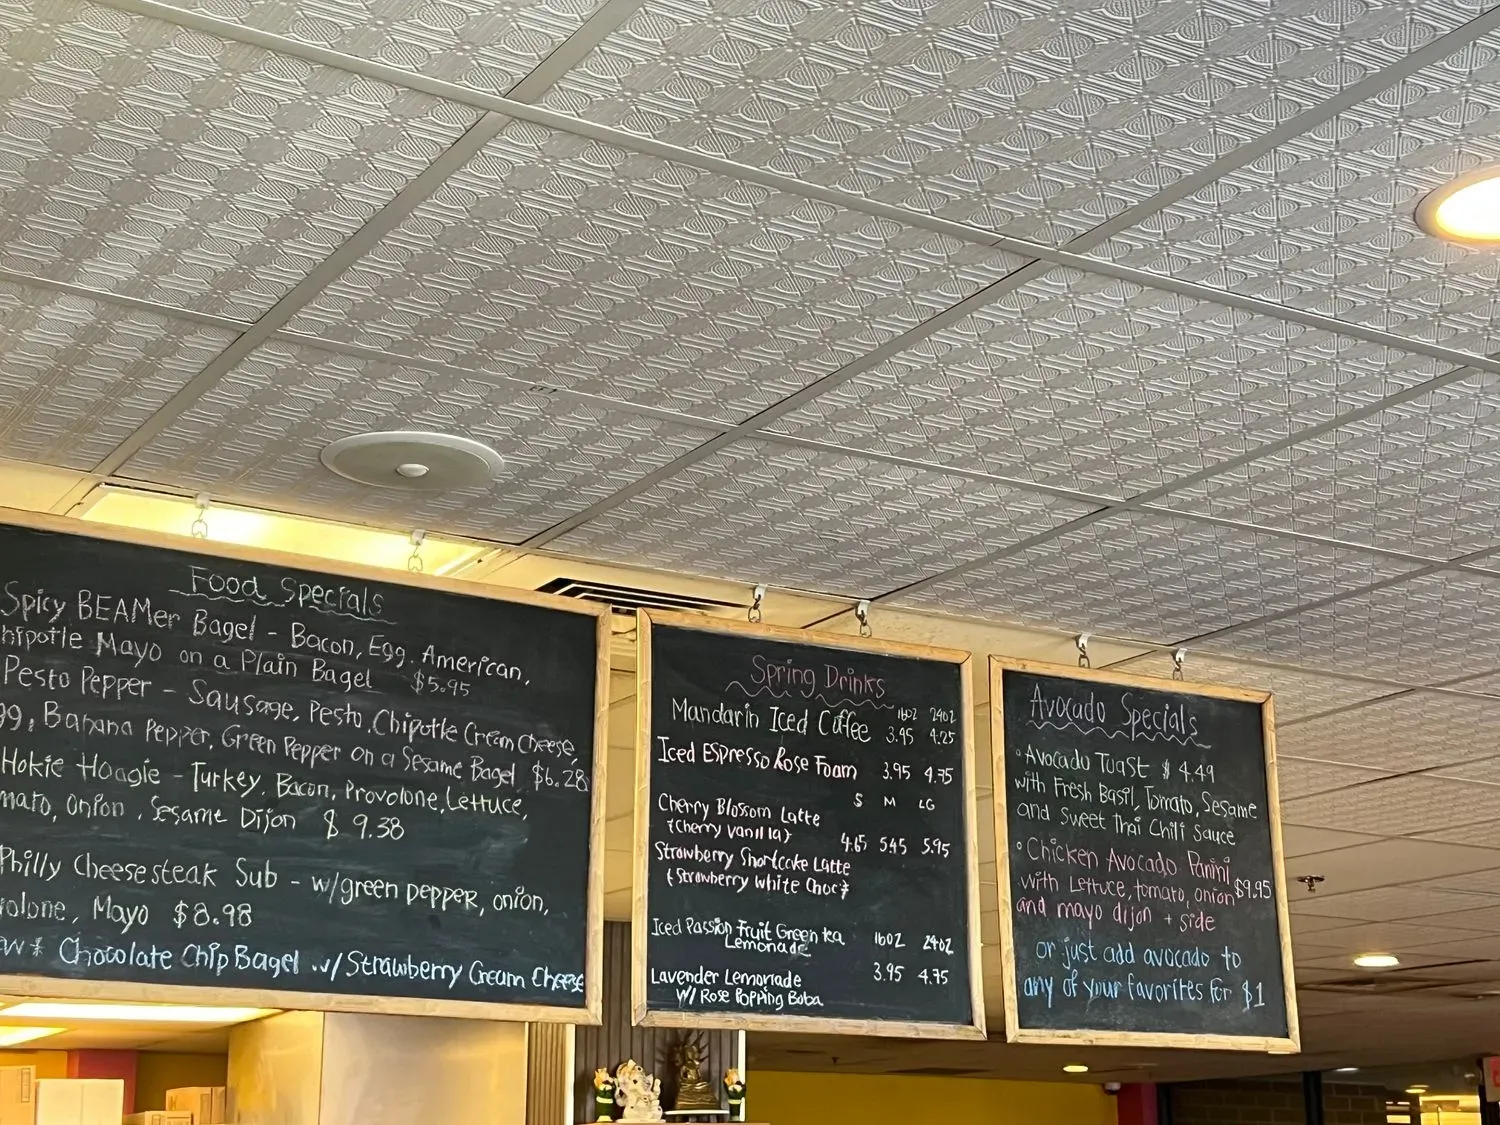 Food Specials
Spicy BEAMer Bagel - Bacon, Egg, American,
hipotle Mayo on a Plain Bagel $5.95
Pesto Pepper - Sausage, Pesto, Chipotle Cream Cheese,
gg, Banana Pepper, Green Pepper on a Sesame Bagel $6.28
Hokie Hoagie - Turkey, Bacon, Provolone, Lettuce,
mato, onion, Sesame Dijon $9.38
Philly Cheesesteak Sub - w/green pepper, onion,
volone, Mayo $8.98
ew* Chocolate Chip Bagel w/ Strawberry Cream Cheese
Spring Drinks
Mandarin Iced Coffee 16oz 3.95 24oz 4.25
Iced Espresso Rose Foam 3.95 4.75
S M LG
Cherry Blossom Latte
{Cherry Vanilla} 4.65 5.45 5.95
Strawberry Shortcake Latte
{Strawberry White Choc}
Iced Passion Fruit Green tea 16oz 24oz
Lemonade
Lavender Lemonade 3.95 4.75
w/ Rose Popping Boba
Avocado Specials
• Avocado Toast $4.49
with Fresh Basil, Tomato, Sesame
and Sweet Thai Chili Sauce
• Chicken Avocado Panini
with Lettuce, tomato, onion $9.95
and mayo dijon + side
or just add avocado to
any of your favorites for $1